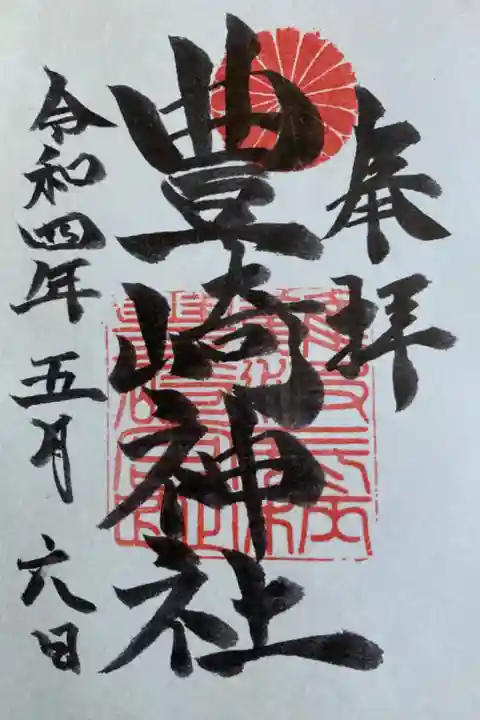 奉拝
豊崎神社
令和四年五月六日